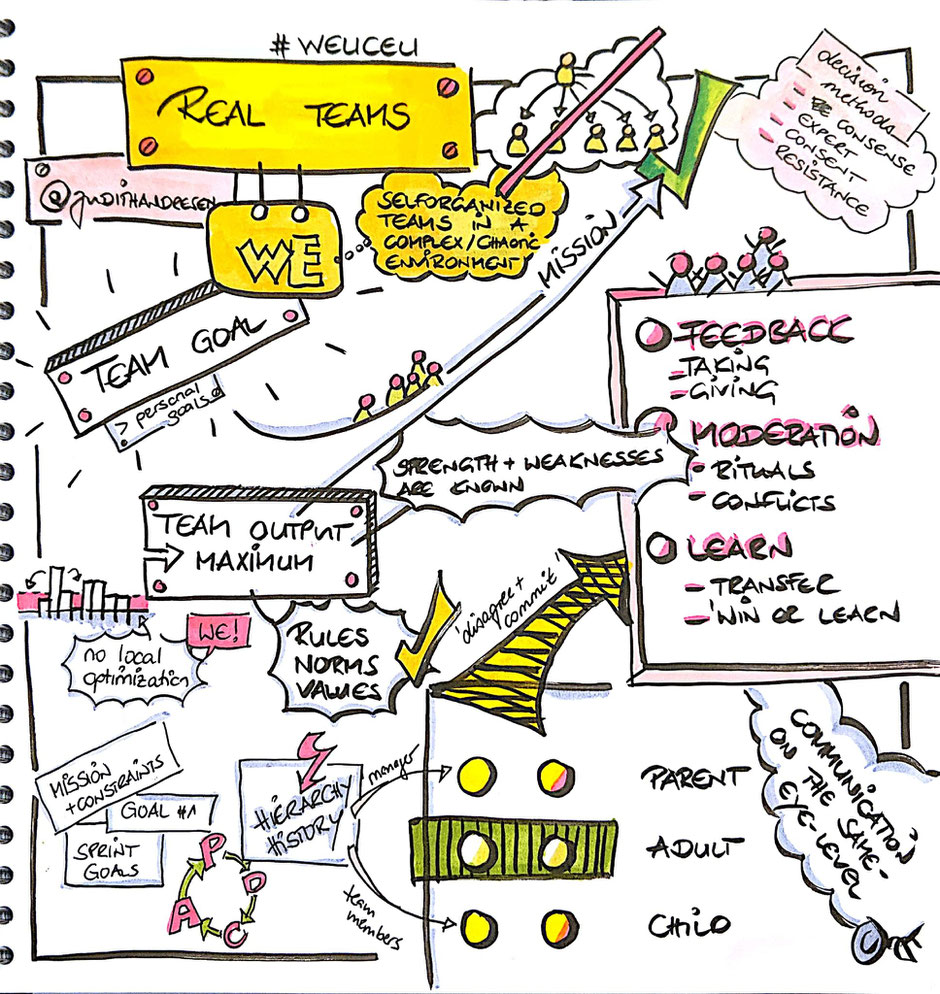 # WEUCEU
REAL TEAMS
@JUDITHANDRESEN
WE
SELFORGANIZED
TEAMS IN A
COMPLEX/CHAOTIC
ENVIRONMENT
decision
methods
- CONSENSE
- EXPERT
- CONSENT
- RESISTANCE
MISSION
TEAM GOAL
> personal
goals
FEEDBACK
- TAKING
- GIVING
MODERATION
- RITUALS
- CONFLICTS
LEARN
- TRANSFER
- WIN OR LEARN
STRENGTH + WEAKNESSES
ARE KNOWN
TEAM OUTPUT
MAXIMUM
WE!
no local
optimization
RULES
NORMS
VALUES
disagree +
commit
MISSION
+ CONSTRAINTS
GOAL #1
SPRINT
GOALS
P
D
C
A
HIERARCHY
HISTORY
manager
team
members
PARENT
ADULT
CHILD
COMMUNICATION
ON THE SAME-
EYE-LEVEL